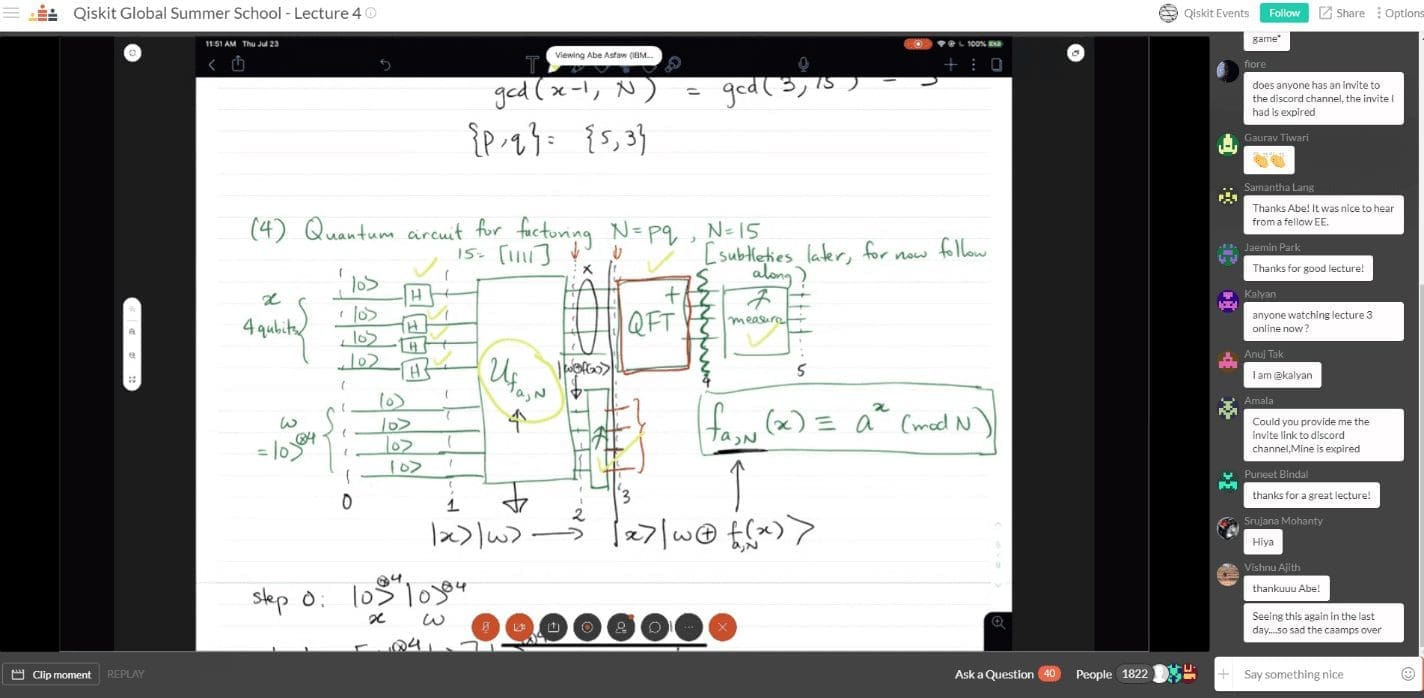 Qiskit Global Summer School - Lecture 4
Qiskit Events
Follow
Share
Options
11:51 AM Thu Jul 23
Viewing Abe Asfaw (IBM...
100%
gcd(x-1, N) = gcd(3,15) = 3
{p,q} = {5,3}
(4) Quantum circuit for factoring N=pq, N=15
15 = [1111]
[subtleties later, for now follow along]
x
4 qubits
|0> H
|0> H
|0> H
|0> H
x
QFT†
measure
U f a,N
|w⊕f(x)>
w
= |0>⊗4
|0>
|0>
|0>
|0>
f a,N (x) ≡ a^x (mod N)
0 1 2 3 4 5
|x>|w> → |x>|w ⊕ f a,N (x)>
step 0: |0>⊗4 |0>⊗4
x w
game"
fiore
does anyone has an invite to
the discord channel, the invite I
had is expired
Gaurav Tiwari
👏👏
Samantha Lang
Thanks Abe! It was nice to hear
from a fellow EE.
Jaemin Park
Thanks for good lecture!
Kalyan
anyone watching lecture 3
online now?
Anuj Tak
I am @kalyan
Amala
Could you provide me the
invite link to discord
channel,Mine is expired
Puneet Bindal
thanks for a great lecture!
Srujana Mohanty
Hiya
Vishnu Ajith
thankuuu Abe!
Seeing this again in the last
day....so sad the caamps over
Clip moment
REPLAY
Ask a Question 40
People 1822
Say something nice